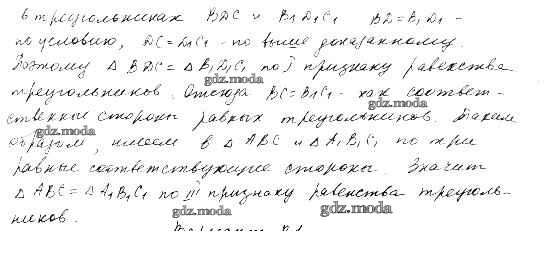 в треугольниках BDC и B1D1C1 BD=B1D1 -
по условию, DC=D1C1 - по выше доказанному.
Поэтому △ BDC = △ B1D1C1 по I признаку равенства
gdz.moda
треугольников. Отсюда BC=B1C1 - как соответ-
gdz.moda
ственные стороны равных треугольников. Таким
gdz.moda
образом, имеем в △ ABC и △ A1B1C1 по три
gdz.moda
равные соответствующие стороны. Значит
△ ABC = △ A1B1C1 по III признаку равенства треуголь-
gdz.moda
ников.
gdz.moda
gdz.moda